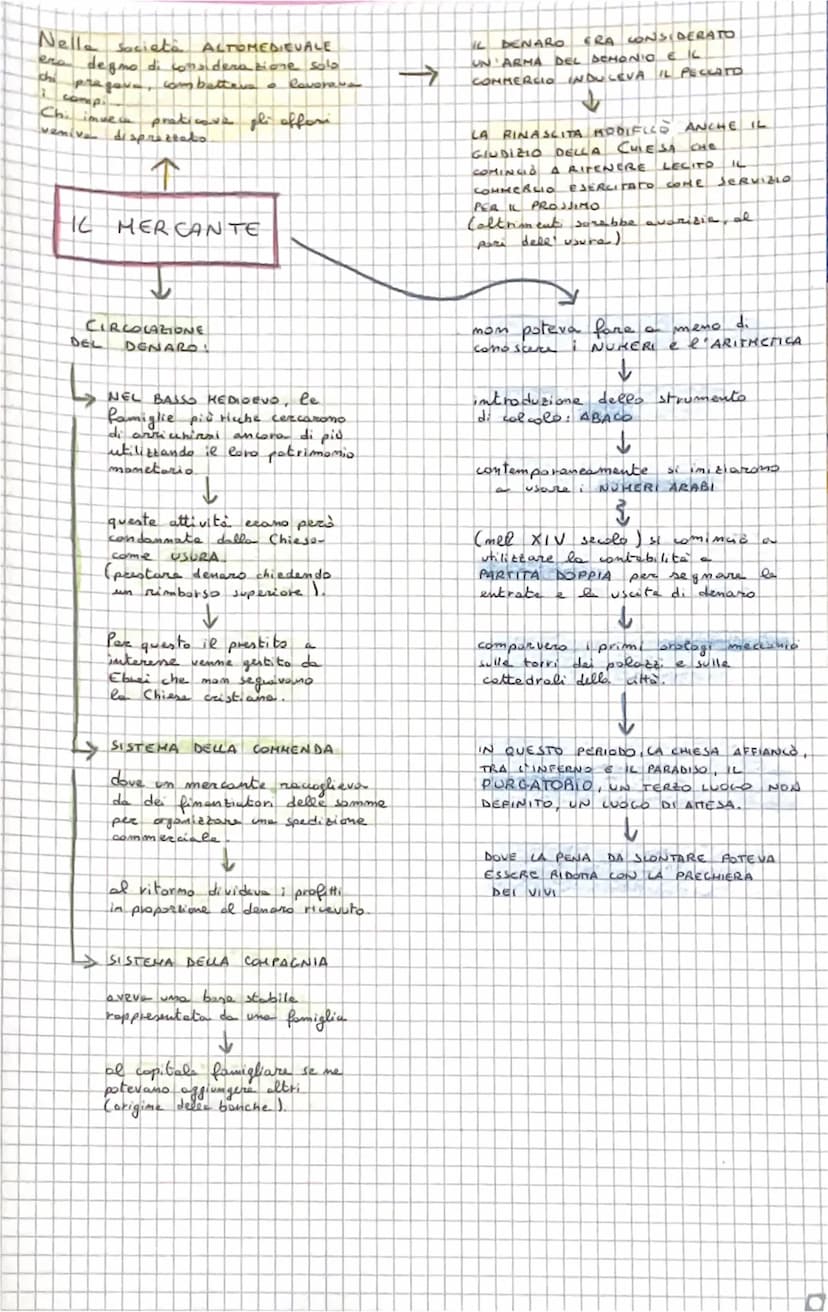 Nella società ALTOMEDIEVALE
era degno di considerazione solo
chi pregava, combatteva o lavorava
i campi.
Chi invece praticava gli affari
veniva disprezzato.
IL DENARO ERA CONSIDERATO
UN'ARMA DEL DEMONIO E IL
COMMERCIO INDUCEVA IL PECCATO
LA RINASCITA MODIFICÒ ANCHE IL
GIUDIZIO DELLA CHIESA CHE
COMINCIÒ A RITENERE LECITO IL
COMMERCIO ESERCITATO COME SERVIZIO
PER IL PROSSIMO
(altrimenti sarebbe avarizia, al
pari dell'usura)
IL MERCANTE
CIRCOLAZIONE
DEL DENARO:
NEL BASSO MEDIOEVO, le
famiglie più ricche cercarono
di arricchirsi ancora di più
utilizzando il loro patrimonio
monetario
queste attività erano però
condannate dalla Chiesa
come USURA
(prestare denaro chiedendo
un rimborso superiore).
Per questo il prestito a
interesse venne gestito da
Ebrei che non seguivano
la Chiesa cristiana.
SISTEMA DELLA COMMENDA
dove un mercante raccoglieva
da dei finanziatori delle somme
per organizzare una spedizione
commerciale.
al ritorno divideva i profitti
in proporzione al denaro ricevuto.
SISTEMA DELLA COMPAGNIA
aveva una base stabile
rappresentata da una famiglia
al capitale famigliare se ne
potevano aggiungere altri
(origine delle banche).
non poteva fare a meno di
conoscere i NUMERI e l'ARITMETICA
introduzione dello strumento
di calcolo: ABACO
contemporaneamente si iniziarono
a usare i NUMERI ARABI
(nel XIV secolo) si cominciò a
utilizzare la contabilità a
PARTITA DOPPIA per segnare le
entrate e le uscite di denaro
comparvero i primi orologi meccanici
sulle torri dei palazzi e sulle
cattedrali della città.
IN QUESTO PERIODO, LA CHIESA AFFIANCÒ,
TRA L'INFERNO E IL PARADISO, IL
PURGATORIO, UN TERZO LUOGO NON
DEFINITO, UN LUOGO DI ATTESA.
DOVE LA PENA DA SCONTARE POTEVA
ESSERE RIDOTTA CON LA PREGHIERA
DEI VIVI